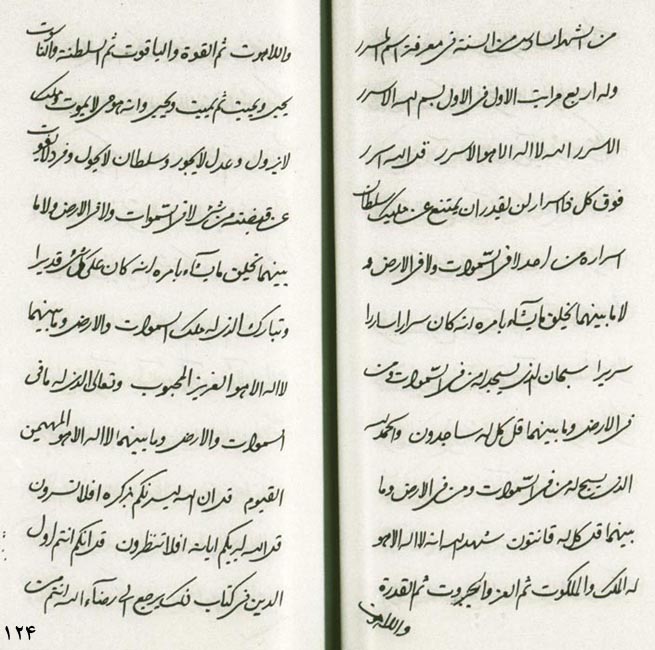 من الشهر السادس من السنة فی معرفة اسم
وله اربع مراتب الاول فی الاول بسم الله الاسرر
الاسرر الله لا اله الا هو الاسرر الاسرر قل الله اسرر
فوق کل ذا اسرار لن یقدر ان یمتنع عن ملیک سلطان
اسراره من احد لا فی السموات ولا فی الارض و
لا ما بینهما یخلق ما یشاء بامره انه کان سرارا ساررا
سریرا سبحان الذی یسجد له من فی السموات و من
فی الارض وما بینهما قل کل له ساجدون والحمد لله
الذی یسبح له من فی السموات ومن فی الارض وما
بینهما قل کل له قانتون شهد الله انه لا اله الا هو
له الملک والملکوت ثم العز والجبروت ثم القدرة
واللاهوت
واللاهوت ثم القوة والیاقوت ثم السلطنة والناسوت
یحیی ویمیت ثم یمیت ویحیی وانه هو حی لا یموت وملک
لا یزول وعدل لا یجور وسلطان لا یحول وفرد لا یفوت
عن قبضته من شیء لا فی السموات ولا فی الارض ولا ما
بینهما یخلق ما یشاء بامره انه کان علی کل شیء قدیرا
وتبارک الذی له ملک السموات والارض وما بینهما
لا اله الا هو العزیز المحبوب وتعالی الذی له ما فی
السموات والارض وما بینهما لا اله الا هو المهیمن
القیوم قل ان الله لیسرنکم بذکره افلا تسرون
قل الله لیریکم ایاته افلا تنظرون قل انکم انتم اول
الدین فی کتاب ذلک یرجع الی رضاء الله انتم
۱۲۴